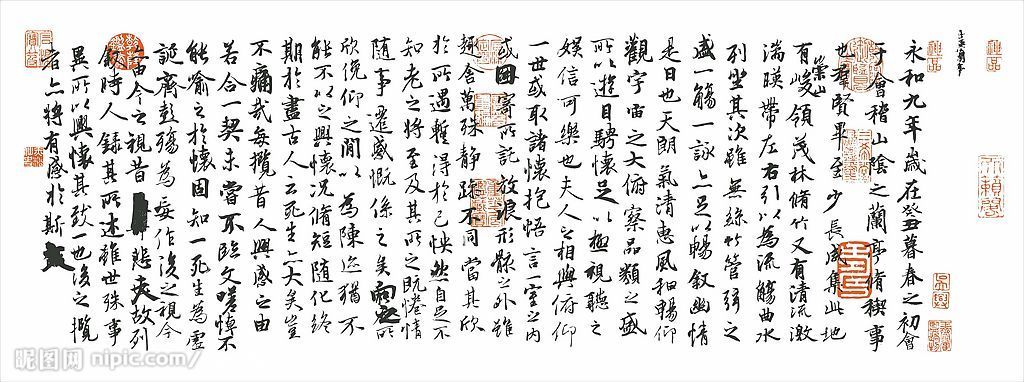 永和九年歲在癸丑暮春之初會
于會稽山陰之蘭亭脩禊事
也羣賢畢至少長咸集此地
有崇山峻領茂林脩竹又有清流激
湍暎帶左右引以為流觴曲水
列坐其次雖無絲竹管弦之
盛一觴一詠亦足以暢敘幽情
是日也天朗氣清惠風和暢仰
觀宇宙之大俯察品類之盛
所以遊目騁懷足以極視聽之
娛信可樂也夫人之相與俯仰
一世或取諸懷抱悟言一室之內
或因寄所託放浪形骸之外雖
趣舍萬殊靜躁不同當其欣
於所遇暫得於己怏然自足不
知老之將至及其所之既惓情
隨事遷感慨係之矣向之所
欣俛仰之閒以為陳迹猶不
能不以之興懷況脩短隨化終
期於盡古人云死生亦大矣豈
不痛哉每攬昔人興感之由
若合一契未嘗不臨文嗟悼不
能喻之於懷固知一死生為虛
誕齊彭殤為妄作後之視今
由今之視昔悲夫故列
敘時人錄其所述雖世殊事
異所以興懷其致一也後之攬
者亦將有感於斯文
昵图网 nipic.com/